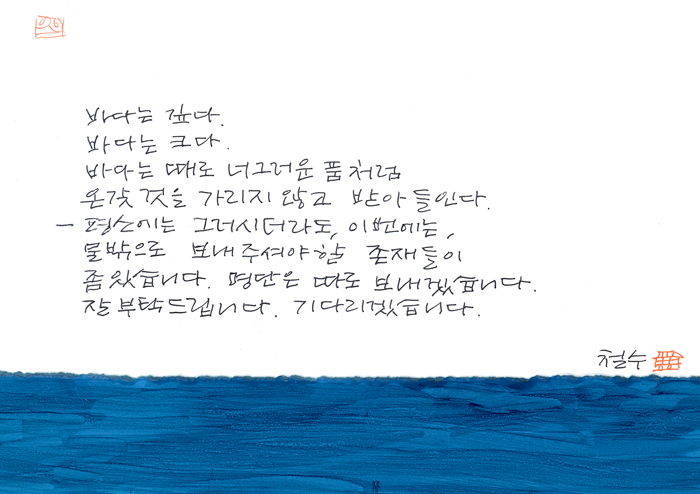 바다는 깊다.
바다는 크다.
바다는 때로 너그러운 품처럼
온갖 것을 가리지 않고 받아들인다.
— 평소에는 그러시더라도, 이번에는,
물밖으로 보내주셔야할 존재들이
좀 있습니다. 명단은 따로 보내겠습니다.
잘 부탁드립니다. 기다리겠습니다.
철수